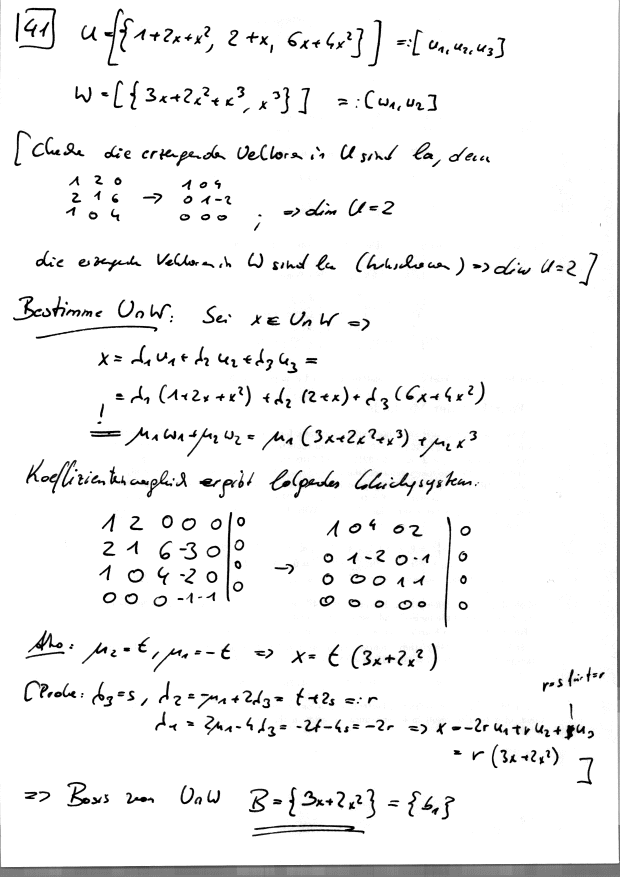 41 U = [{1+2x+x², 2+x, 6x+4x²}] =: [u₁, u₂, u₃]
W = [{3x+2x²+x³, x³}] =: [w₁, w₂]
[Checke die erzeugenden Vektoren in U sind la, denn
1 2 0    1 0 4
2 1 6 → 0 1 -2
1 0 4    0 0 0 ; ⇒ dim U = 2
die erzeugenden Vektoren in W sind lu (hinschauen) ⇒ dim U = 2]
Bestimme U∩W: Sei x ∈ U∩W ⇒
x = λ₁u₁ + λ₂u₂ + λ₃u₃ =
= λ₁(1+2x+x²) + λ₂(2+x) + λ₃(6x+4x²)
!
= μ₁w₁ + μ₂w₂ = μ₁(3x+2x²+x³) + μ₂x³
Koeffizientenvergleich ergibt folgendes Gleichgsystem:
1 2 0 0 0 | 0    1 0 4 0 2 | 0
2 1 6 -3 0 | 0    0 1 -2 0 -1 | 0
1 0 4 -2 0 | 0 → 0 0 0 1 1 | 0
0 0 0 -1 -1 | 0    0 0 0 0 0 | 0
Also: μ₂ = t, μ₁ = -t ⇒ x = t(3x+2x²)
[Probe: λ₃ = s, λ₂ = -μ₁+2λ₃ = t+2s =: r
λ₁ = 2μ₁-4λ₃ = -2t-4s = -2r ⇒ x = -2r u₁ + r u₂ + u₃
= r(3x+2x²)]
⇒ Basis von U∩W B = {3x+2x²} = {b₁}